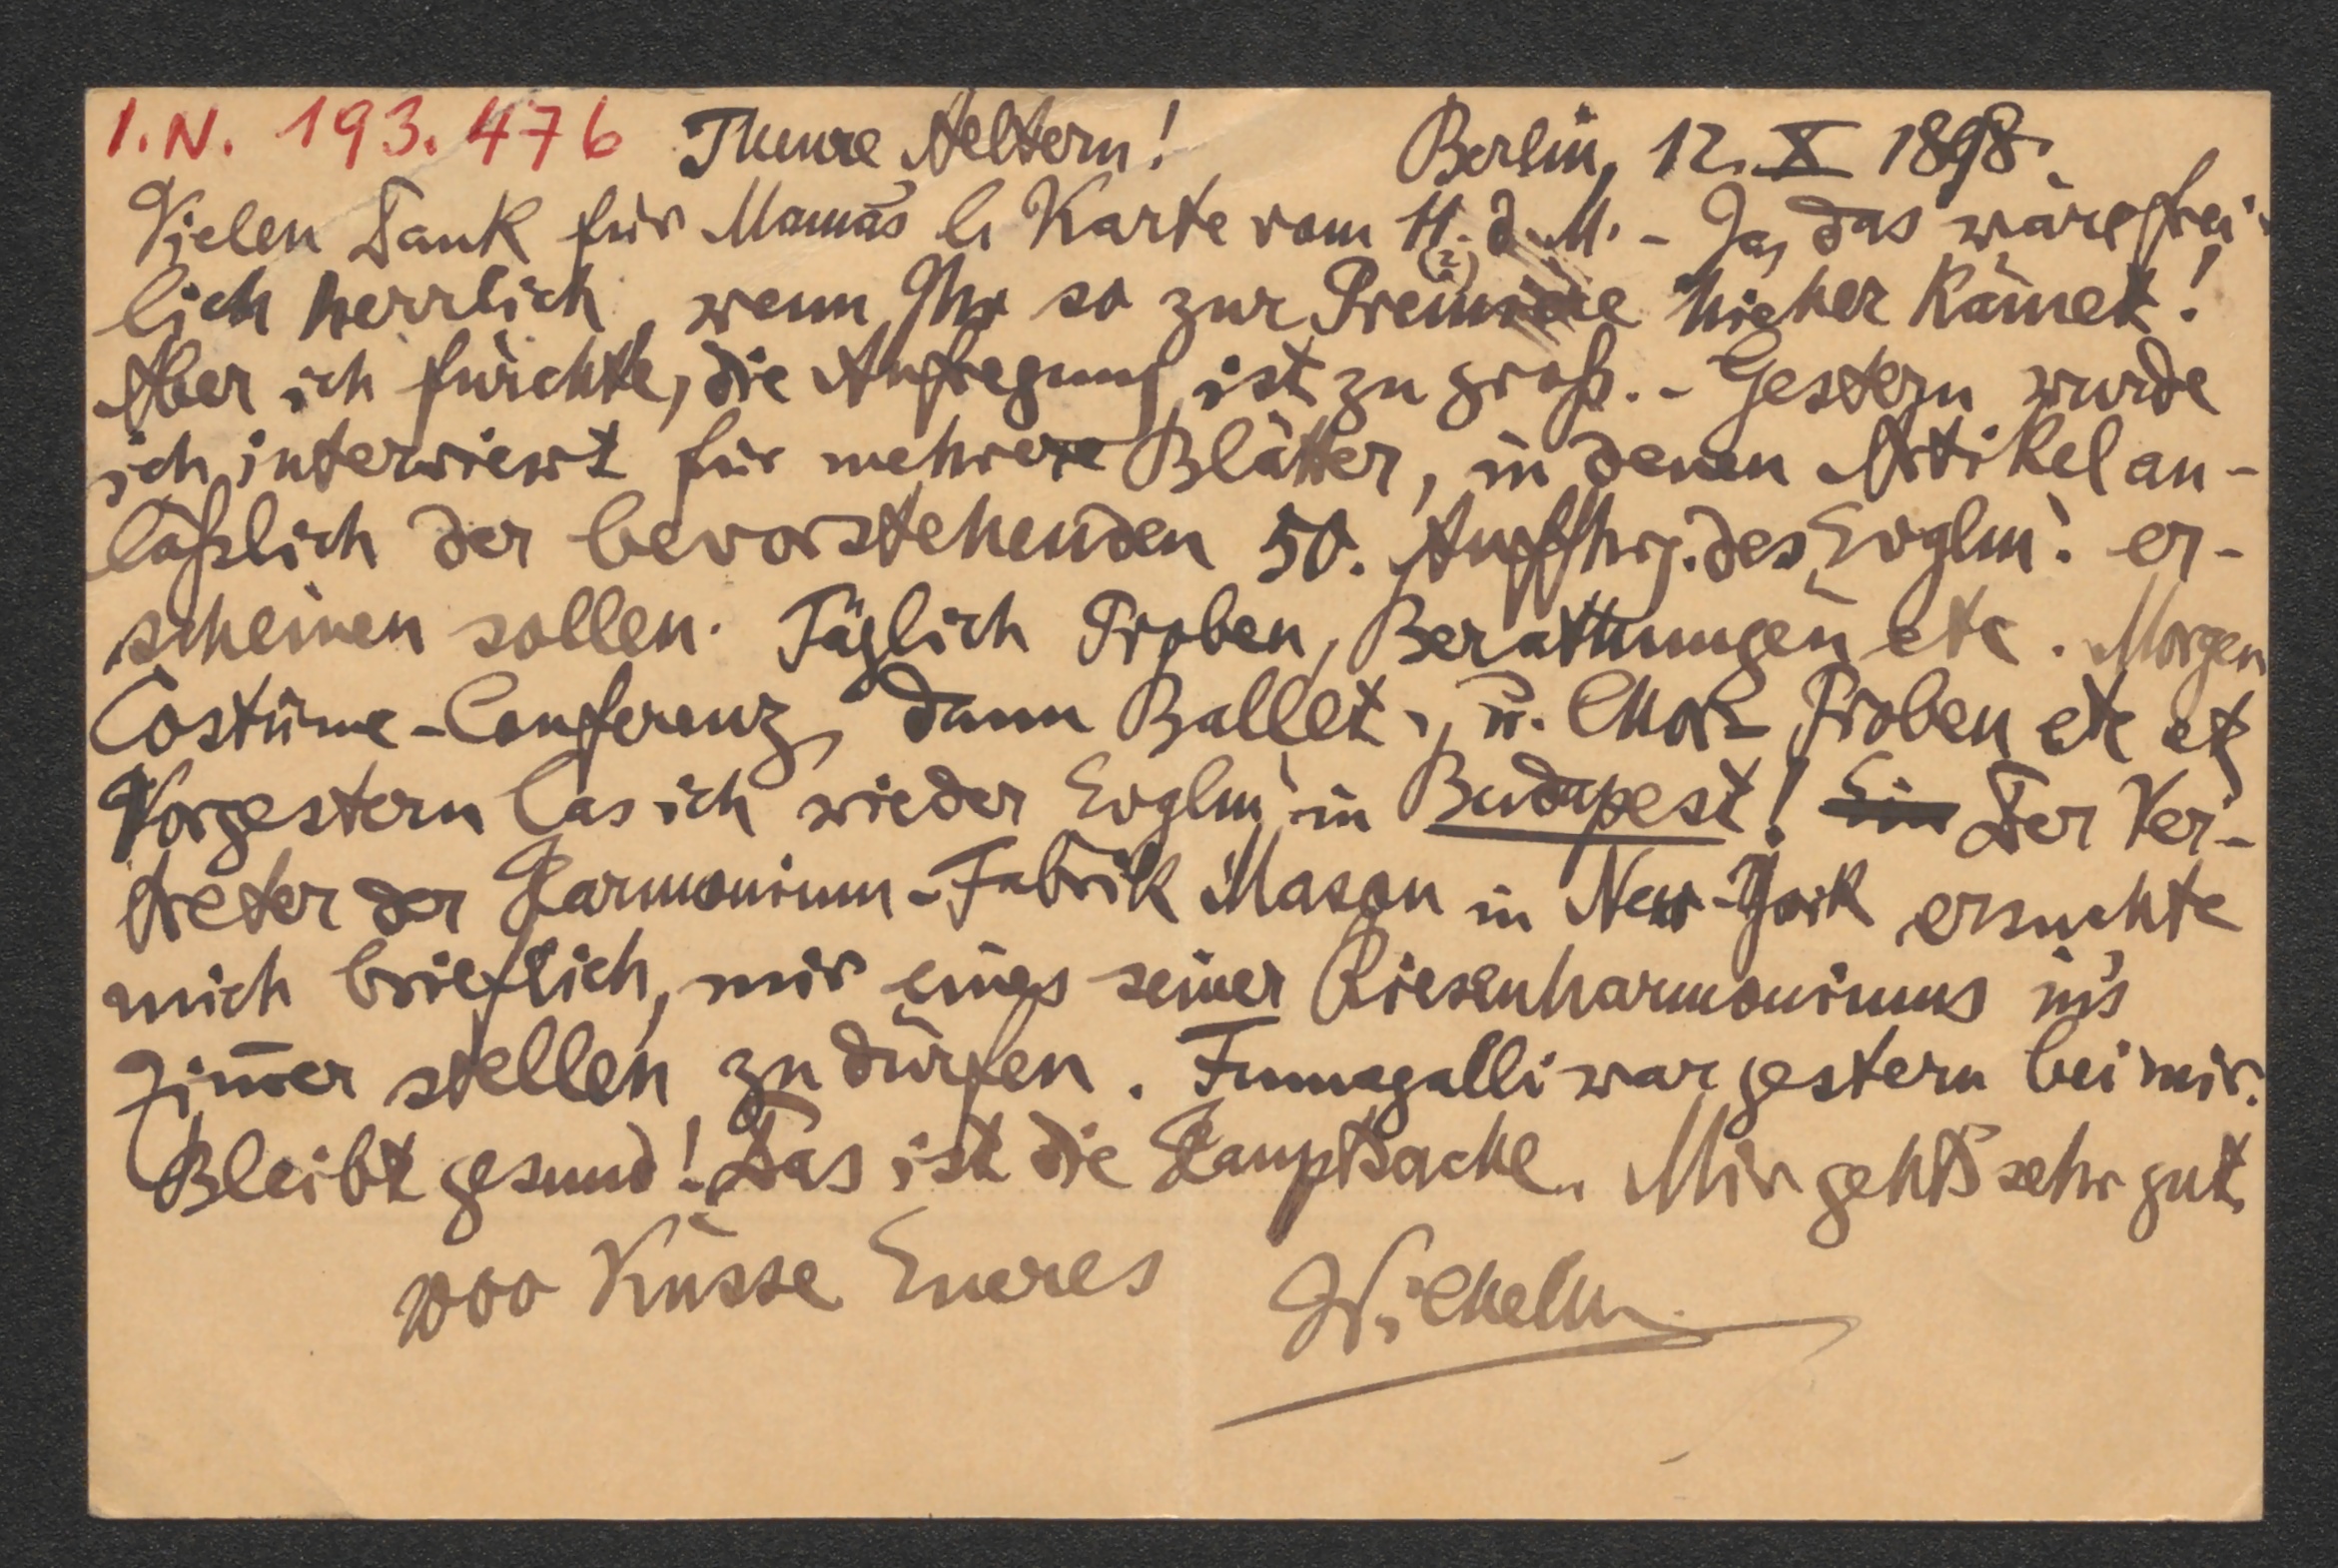 I.N. 193.476 Theure Aeltern! Berlin, 12. X 1898.
Vielen Dank für Mama's l. Karte vom 11. d. M. - Ja, das wäre frei-
(?)
lich herrlich, wenn Ihr so zur Première hieher kämet!
Aber ich fürchte, die Aufregung ist zu groß. - Gestern wurde
ich interwiewt für mehrere Blätter, in denen Artikel an-
läßlich der bevorstehenden 50. Aufführg. des Evglm. er-
scheinen sollen. Täglich Proben, Berathungen etc. Morgen
Costüme-Conferenz, dann Ballet-, u. Chor-Proben etc etc
Vorgestern las ich wieder Evglm in Budapest! Ein Der Ver-
treter der Harmonium-Fabrik Mason in New-York ersuchte
mich brieflich, mir eines seiner Riesenharmoniums in's
Zim̅er stellen zu dürfen. Fumagalli war gestern bei mir.
Bleibt gesund! Das ist die Hauptsache. Mir geht's sehr gut.
1000 Küsse Eueres Wilhelm